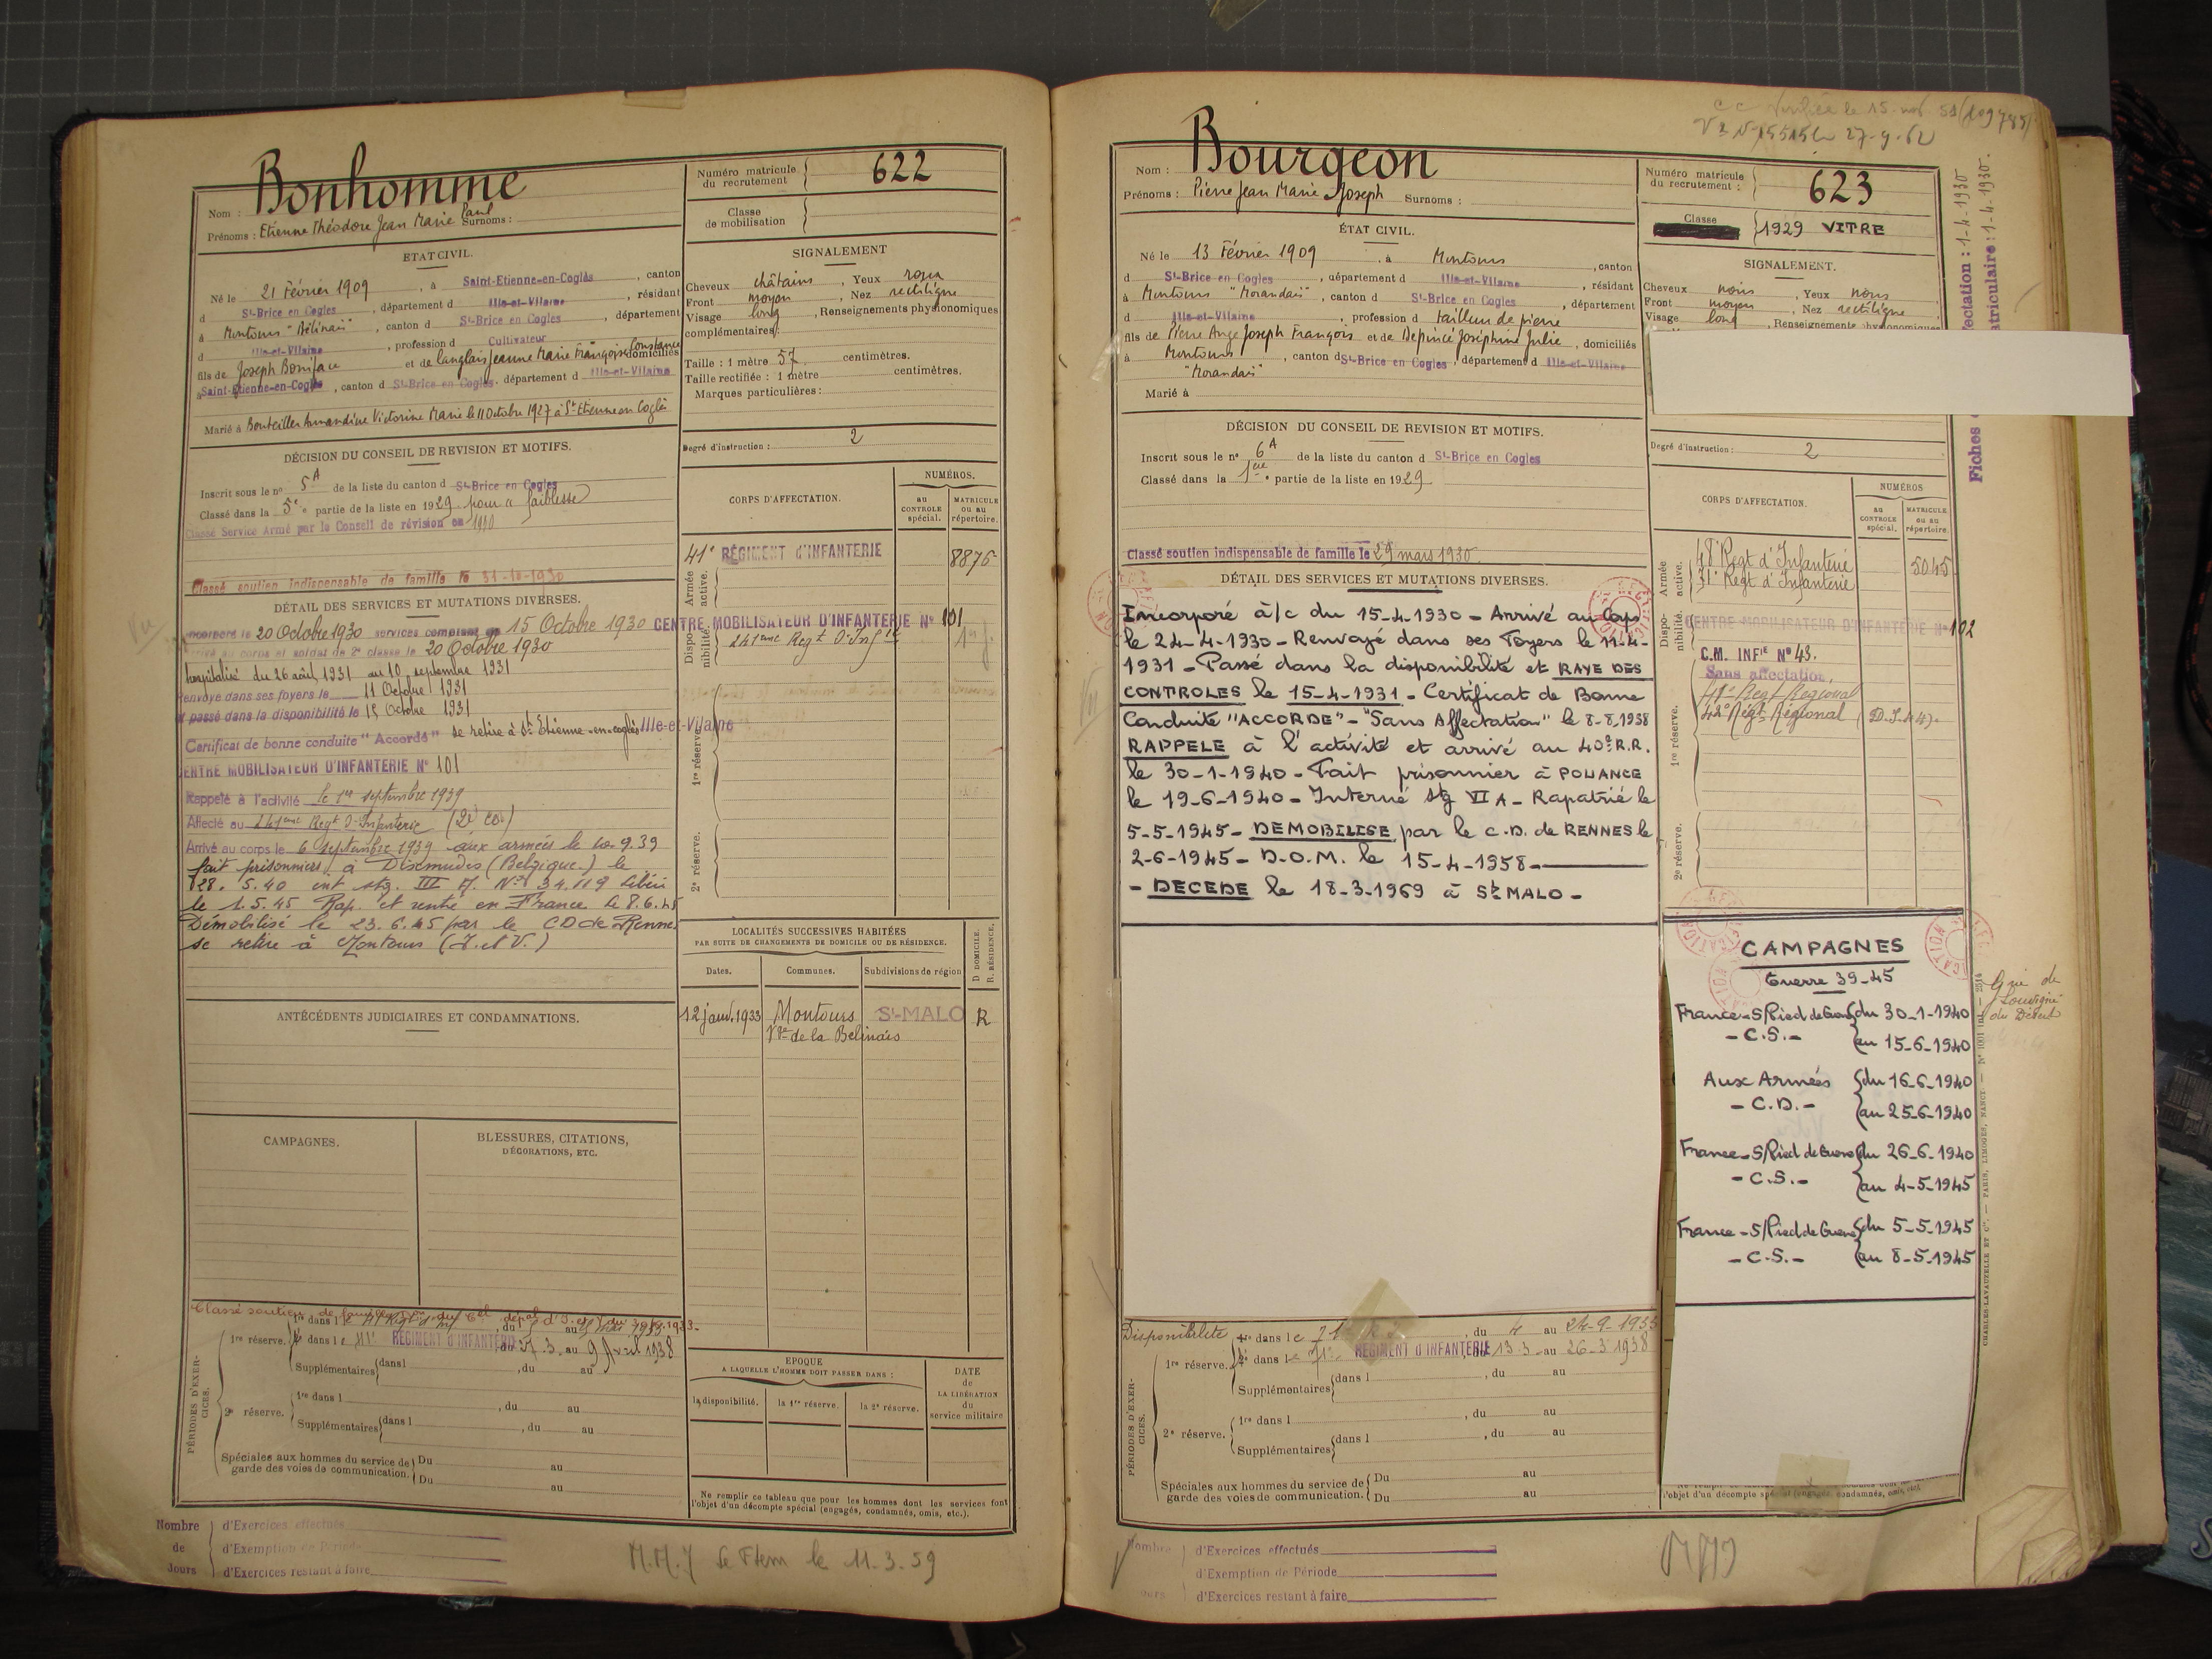 Bonhomme
Nom :
Prénoms : Etienne Théodore Jean Marie Paul Surnoms :
Numéro matricule du recrutement 622
Classe de mobilisation
ÉTAT CIVIL.
Né le 21 Février 1909, à Saint-Etienne-en-Coglès, canton
d St-Brice en Cogles, département d Ille-et-Vilaine, résidant
à Montours "Bélinais", canton d St-Brice en Cogles, département
d Ille-et-Vilaine, profession d Cultivateur
fils de Joseph Boniface et de Langlais Jeanne Marie Françoise Constance domiciliés
à Saint-Etienne-en-Coglès, canton d St-Brice en Cogles, département d Ille-et-Vilaine
Marié à Bouteiller Amandine Victorine Marie le 11 Octobre 1927 à St Etienne en Coglès
SIGNALEMENT
Cheveux châtains, Yeux roux
Front moyen, Nez rectiligne
Visage long, Renseignements physionomiques
complémentaires :
Taille : 1 mètre 57 centimètres.
Taille rectifiée : 1 mètre centimètres.
Marques particulières :
Degré d'instruction : 2
DÉCISION DU CONSEIL DE REVISION ET MOTIFS.
Inscrit sous le no 5 A de la liste du canton d St-Brice en Cogles
Classé dans la 5e partie de la liste en 1929 pour faiblesse
Classé Service Armé par le Conseil de révision en 1930
Classé soutien indispensable de famille le 31-10-1930
DÉTAIL DES SERVICES ET MUTATIONS DIVERSES.
Incorporé le 20 Octobre 1930 services comptant du 15 Octobre 1930
Arrivé au corps et soldat de 2e classe le 20 Octobre 1930
hospitalisé du 26 août 1931 au 10 septembre 1931
Renvoyé dans ses foyers le 11 Octobre 1931
et passé dans la disponibilité le 15 Octobre 1931
Certificat de bonne conduite "Accordé" se retire à St Etienne-en-coglès Ille-et-Vilaine
CENTRE MOBILISATEUR D'INFANTERIE No 101
Rappelé à l'activité le 1er septembre 1939
Affecté au 241eme Regt d'Infanterie
Arrivé au corps le 6 septembre 1939 aux armées le 10.9.39
fait prisonniers à Dixmudes (Belgique.) le
28.5.40 int stg. III No 34.119 libéré
le 1.5.45 Rap. et rentré en France le 8.6.45
Démobilisé le 23.6.45 par le CD de Rennes
se retire à Montours (I. et V.)
CORPS D'AFFECTATION.
NUMÉROS.
au CONTROLE spécial.
MATRICULE ou au répertoire.
Armée active.
41e RÉGIMENT D'INFANTERIE 8876
Disponibilité.
CENTRE MOBILISATEUR D'INFANTERIE No 101
241eme Regt d'Infie
1re réserve.
2e réserve.
ANTÉCÉDENTS JUDICIAIRES ET CONDAMNATIONS.
LOCALITÉS SUCCESSIVES HABITÉES
PAR SUITE DE CHANGEMENTS DE DOMICILE OU DE RÉSIDENCE.
Dates. Communes. Subdivisions de région D. DOMICILE. R. RÉSIDENCE.
12 janv. 1933 Montours St-MALO R
de la Belinais
CAMPAGNES.
BLESSURES, CITATIONS, DÉCORATIONS, ETC.
PÉRIODES D'EXERCICES.
1re réserve.
1re dans l
2e dans le 41e RÉGIMENT D'INFANTERIE du 27.3. au 9 Avril 1938
Supplémentaires dans l , du au
2e réserve.
1re dans l , du au
Supplémentaires dans l , du au
Spéciales aux hommes du service de garde des voies de communication.
Du au
Du au
EPOQUE
A LAQUELLE L'HOMME DOIT PASSER DANS :
la disponibilité. la 1re réserve. la 2e réserve.
DATE de LA LIBÉRATION du service militaire
Ne remplir ce tableau que pour les hommes dont les services font
l'objet d'un décompte spécial (engagés, condamnés, omis, etc.).
Nombre de Jours
d'Exercices effectués
d'Exemption de Période
d'Exercices restant à faire
le 11.3.59
27-9-62
Bourgeon
Nom :
Prénoms : Pierre Jean Marie Joseph Surnoms :
Numéro matricule du recrutement : 623
Classe 1929 VITRE
ÉTAT CIVIL.
Né le 13 Février 1909, à Montours, canton
d St-Brice en Cogles, département d Ille-et-Vilaine, résidant
à Montours "Morandais", canton d St-Brice en Cogles, département
d Ille-et-Vilaine, profession d tailleur de pierre
fils de Pierre Ange Joseph François et de Depincé Joséphine Julie, domiciliés
à Montours, canton d St-Brice en Cogles, département d Ille-et-Vilaine
"Morandais"
Marié à
SIGNALEMENT.
Cheveux noirs, Yeux noirs
Front moyen, Nez rectiligne
Visage long, Renseignements physionomiques
Degré d'instruction : 2
DÉCISION DU CONSEIL DE REVISION ET MOTIFS.
Inscrit sous le no 6 A de la liste du canton d St-Brice en Cogles
Classé dans la 1ère partie de la liste en 1929
Classé soutien indispensable de famille le 29 mars 1930
DÉTAIL DES SERVICES ET MUTATIONS DIVERSES.
Incorporé à/c du 15-4-1930 - Arrivé au Corps
le 24-4-1930 - Renvoyé dans ses Foyers le 11-4-
1931 - Passé dans la disponibilité et RAYE DES
CONTROLES le 15-4-1931 - Certificat de Bonne
Conduite "ACCORDE" - "Sans Affectation" le 8-8-1938
RAPPELE à l'activité et arrivé au 40e R.R.
le 30-1-1940 - Fait prisonnier à POUANCE
le 19-6-1940 - Interné stg VII A - Rapatrié le
5-5-1945 - DEMOBILISE par le C.D. de RENNES le
2-6-1945 - D.O.M. le 15-4-1958 -
- DECEDE le 18-3-1969 à St MALO -
CORPS D'AFFECTATION.
NUMÉROS
au CONTROLE spécial.
MATRICULE ou au répertoire.
Armée active.
48e Regt d'Infanterie 5045
71e Regt d'Infanterie
Disponibilité.
CENTRE MOBILISATEUR D'INFANTERIE No 102
C.M. INFie No 43.
Sans affectation.
1re réserve.
41e Regt Régional
42e Régt Régional
2e réserve.
CAMPAGNES
Guerre 39-45
France - S/Pied de Guerre du 30-1-1940
- C.S. - au 15-6-1940
Aux Armées du 16-6-1940
- C.D. - au 25-6-1940
France - S/Pied de Guerre du 26-6-1940
- C.S. - au 4-5-1945
France - S/Pied de Guerre du 5-5-1945
- C.S. - au 8-5-1945
Gie de Louvigné du Désert
Disponibilité
PÉRIODES D'EXERCICES.
1re réserve.
1re dans le 71e , du 4 au 24-9-1933
2e dans le 71e RÉGIMENT D'INFANTERIE 13.3 au 26-3 1938
Supplémentaires dans l , du au
2e réserve.
1re dans l , du au
Supplémentaires dans l , du au
Spéciales aux hommes du service de garde des voies de communication.
Du au
Du au
l'objet d'un décompte spécial (engagés, condamnés, omis, etc.
Nombre
Jours
d'Exercices effectués
d'Exemption de Période
d'Exercices restant à faire
CHARLES-LAVAUZELLE ET Cie. — PARIS, LIMOGES, NANCY.